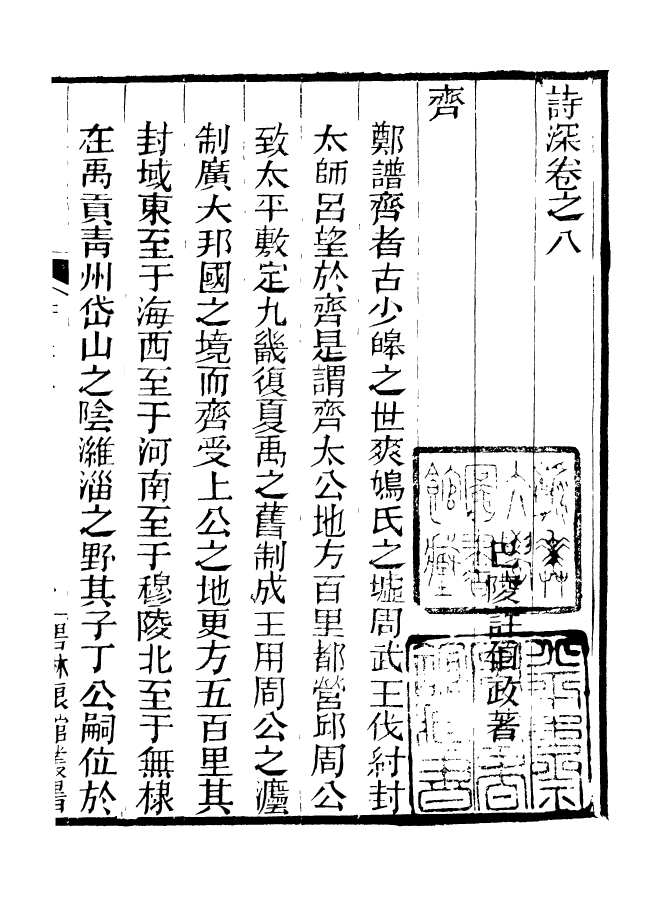 詩深卷之八
巴陵許伯政著
齊
鄭譜齊者古少皞之世爽鳩氏之墟周武王伐紂封
太師呂望於齊是謂齊太公地方百里都營邱周公
致太平敷定九畿復夏禹之舊制成王用周公之灋
制廣大邦國之境而齊受上公之地更方五百里其
封域東至于海西至于河南至于穆陵北至于無棣
在禹貢靑州岱山之陰濰淄之野其子丁公嗣位於